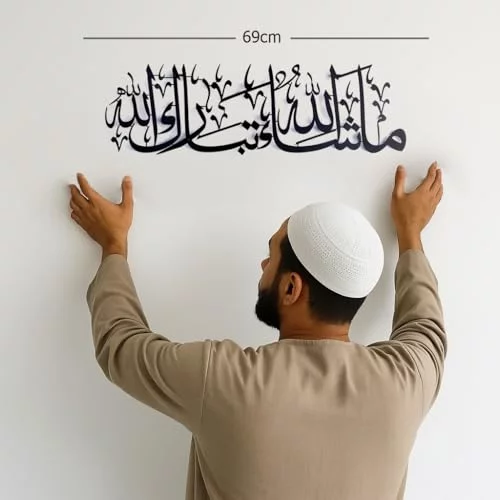 69cm
ما شاء الله تبارك الله